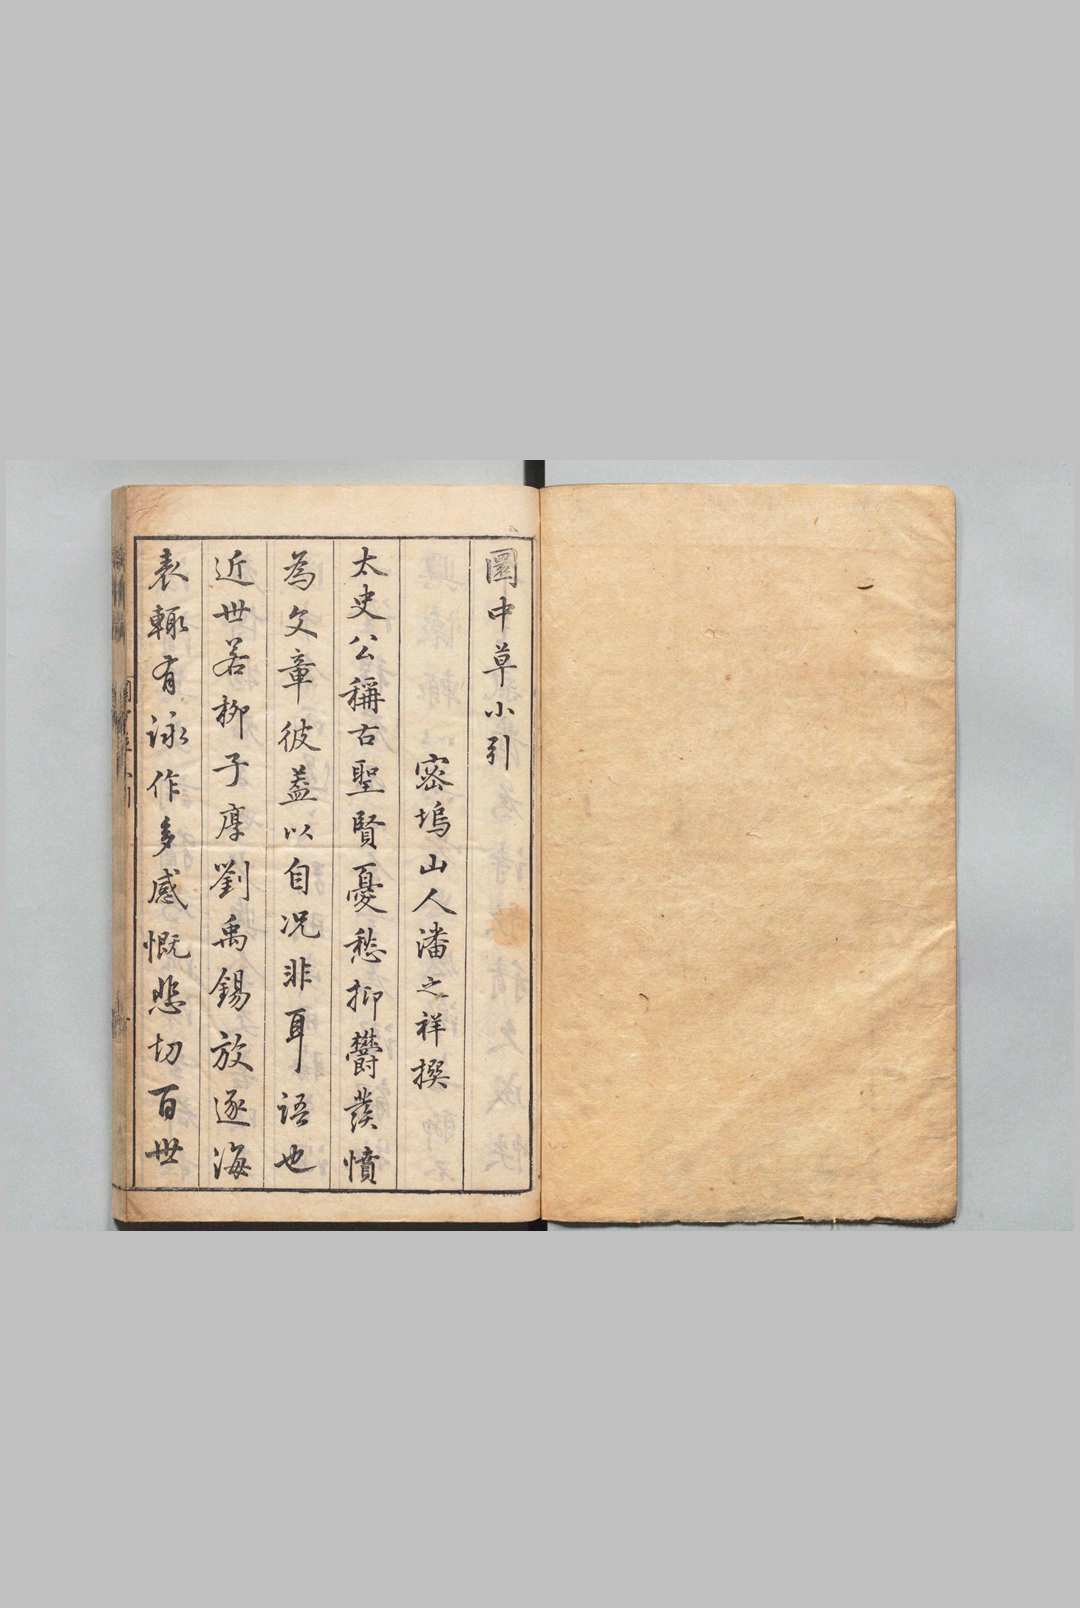 圜中草小引
密塢山人潘之祥撰
太史公稱古聖賢憂愁抑欝發憤
為文章彼葢以自况非耳語也
近世若柳子厚劉禹錫放逐海
表輙有詠作多感慨悲切百世